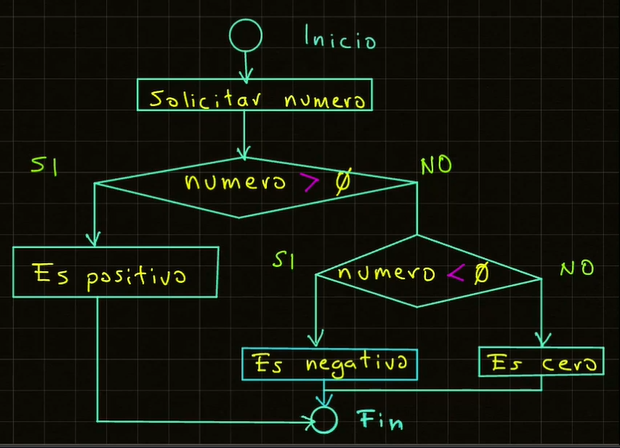 Inicio
Solicitar numero
SI
numero > 0
NO
Es positivo
SI
numero < 0
NO
Es negativo
Es cero
Fin